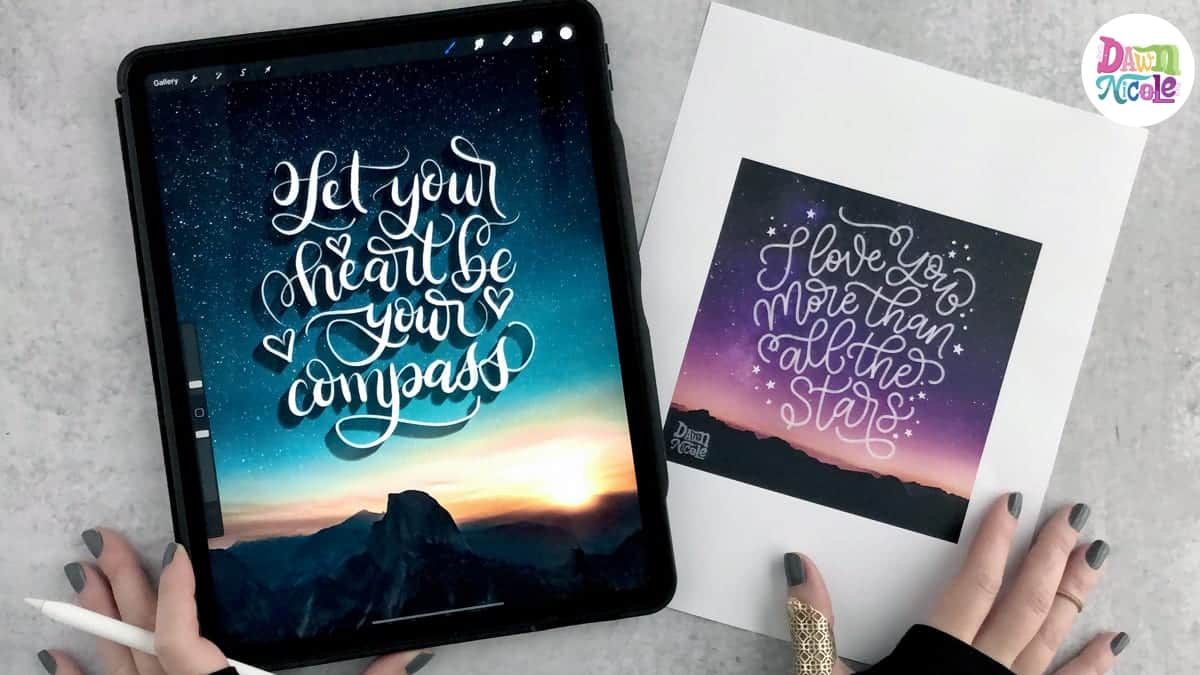 Gallery
Let your
heart be
your
compass
I love you
more than
all the
stars
DAWN
NICOLE
DAWN
NICOLE